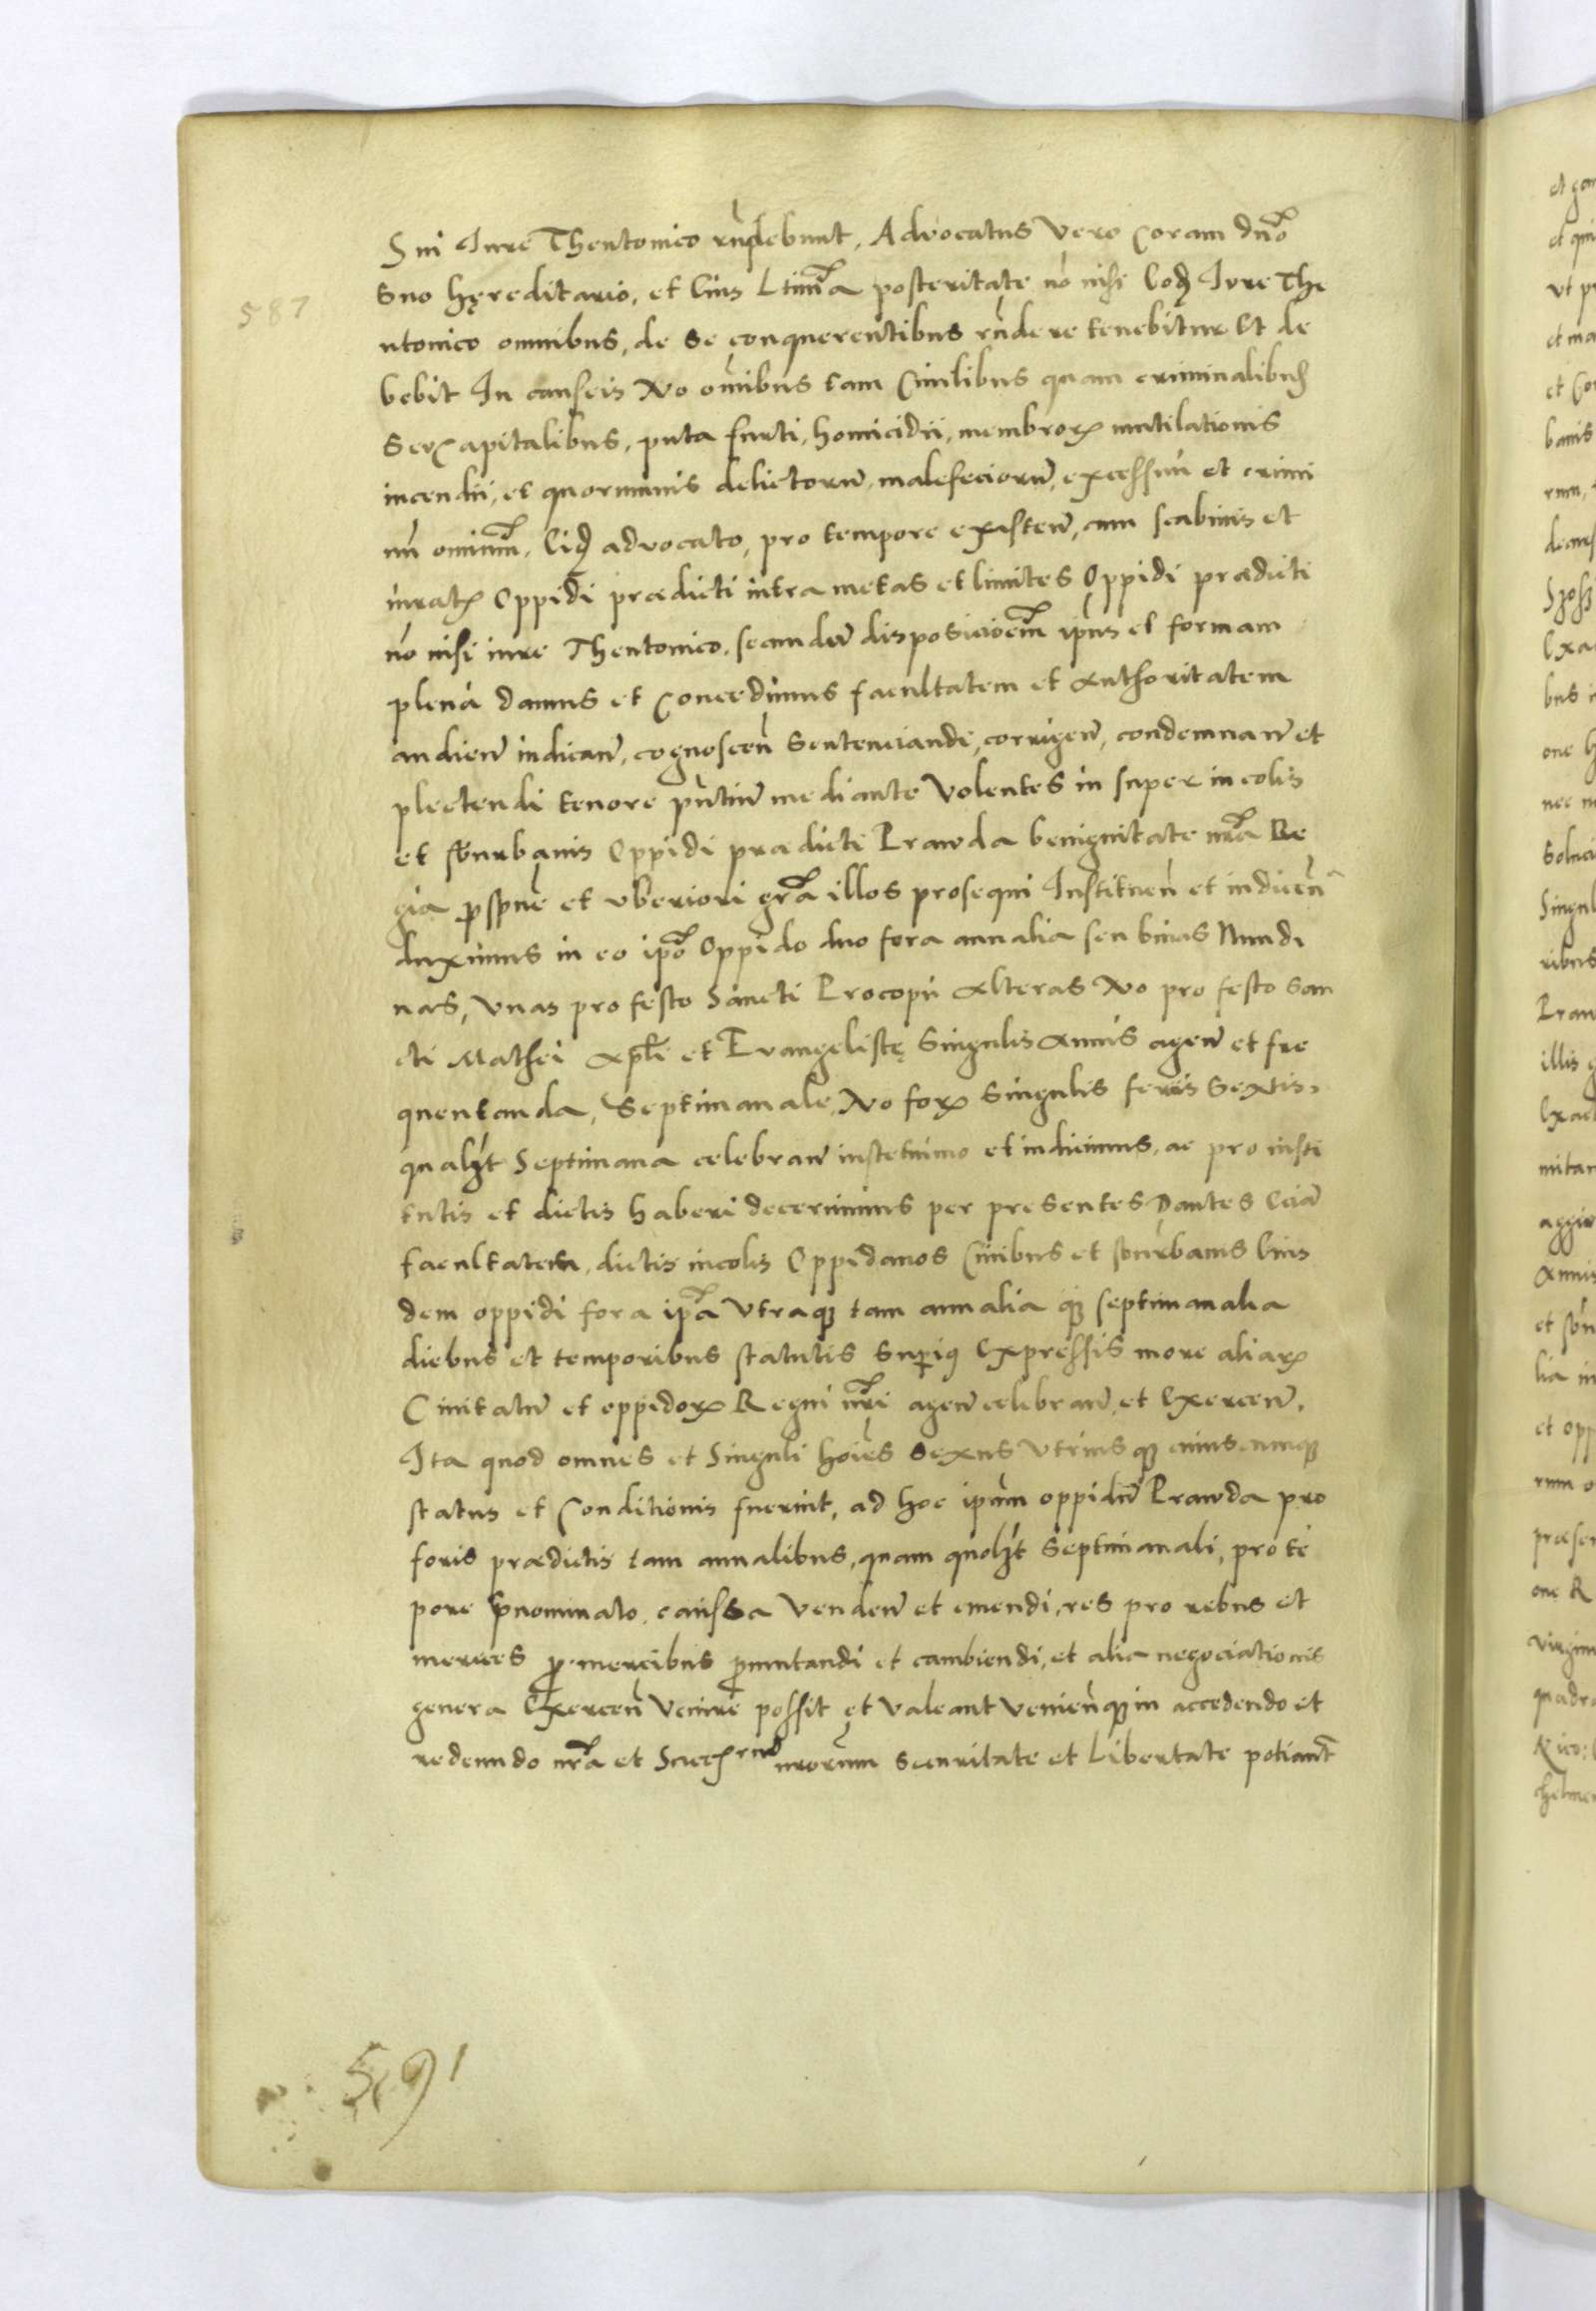 Sui Jure Theutonico rñdebunt, Advocatus Vero Coram dño
Suo hęreditario, et Eius Ltima posteritate nõ nisi Eodẽ Jure The
utonico omnibus, de se conquerentibus rñdere tenebitur Et de
bebit In causis Vo omibus tam Ciuilibus quam criminalibus
Seu Capitalibus, puta furti, homicidii, membrorꝝ mutilationis
incendii, et quorumuis delictorũ, malefeciorũ, excessuũ et crimi
nũ omiũm, Eidẽ advocato, pro tempore existen̄, cum scabinis et
iuratꝭ Oppidi prædicti intra metas et limites Oppidi prædicti
nõ nisi iure Theutonico, secundũ disposicioem ipius et formam
plenã Damus et Concedimus facultatem et Authoritatem
audien̄ iudican̄, cognoscen̄ Sentenciandi, corrigen̄, condemnan̄ et
plectendi tenore pñtiũ mediante Volentes in super incolis
et sburbanis Oppidi prædicti Prawda benignitate nr̃a Re
gia prospue et vberiori gr̃a illos prosequi Instituen̄ et indicen̄
duximus in eo ipo Oppido duo fora annalia seu binas Nundi
nas, Vnas pro festo Sancti Procopii Alteras Vo pro festo San
cti Mathei Apli et Evangelistę Singulis Annis agen̄ et fre
quentanda, Septimanale Vo forꝝ Singulis feriis Sextis,
qualꝫt Septimana celebran̄ instetuimo et indicimus, ac pro insti
tutis et dictis haberi decernimus per presentes Dantes Eciã
facultatem, dictis incolis Oppidanos Ciuibus et sburbanis Eius
dem oppidi fora ipa Vtraqꝫ tam annalia qꝫ septimanalia
diebus et temporibus statutis Superiꝰ Expressis more aliarꝝ
Ciuitatũ et oppidorꝝ Regni nr̃i agen̄ celebran̄, et Exercen̄.
Ita quod omnes et Singuli hoies Sexus Vtriusqꝫ cuiuscunqꝫ
status et Conditionis fuerint, ad hoc ipum oppidũ Prawda pro
foris prædictis tam annalibus, quam quolꝫt Septimanali, pro tẽ
pore prnominato, caussa Venden̄ et emendi, res pro rebus et
merces pro mercibus permutandi et cambiendi, et alia negociationis
genera Exercen̄ Venire possit et Valeant Venien̄qꝫ in accedendo et
redeundo nr̃a et Succꝭrũ nrorum Securitate et Libertate potiant
587
591